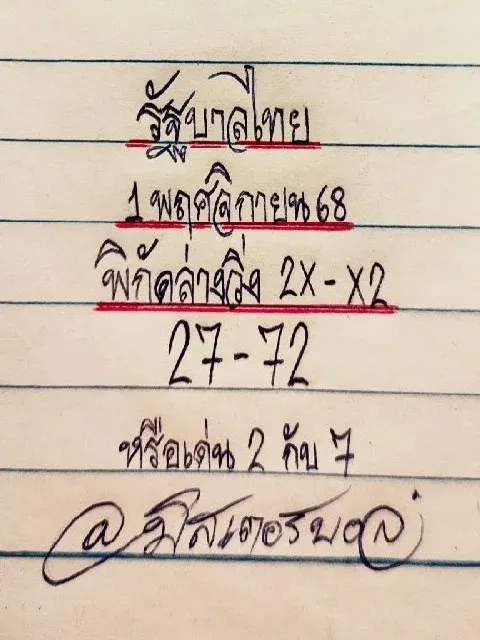 รัฐบาลไทย
1 พฤศจิกายน 68
พิกัดล่างวิ่ง 2X-X2
27-72
หรือเด่น 2 กับ 7
@มิสเตอร์บอล